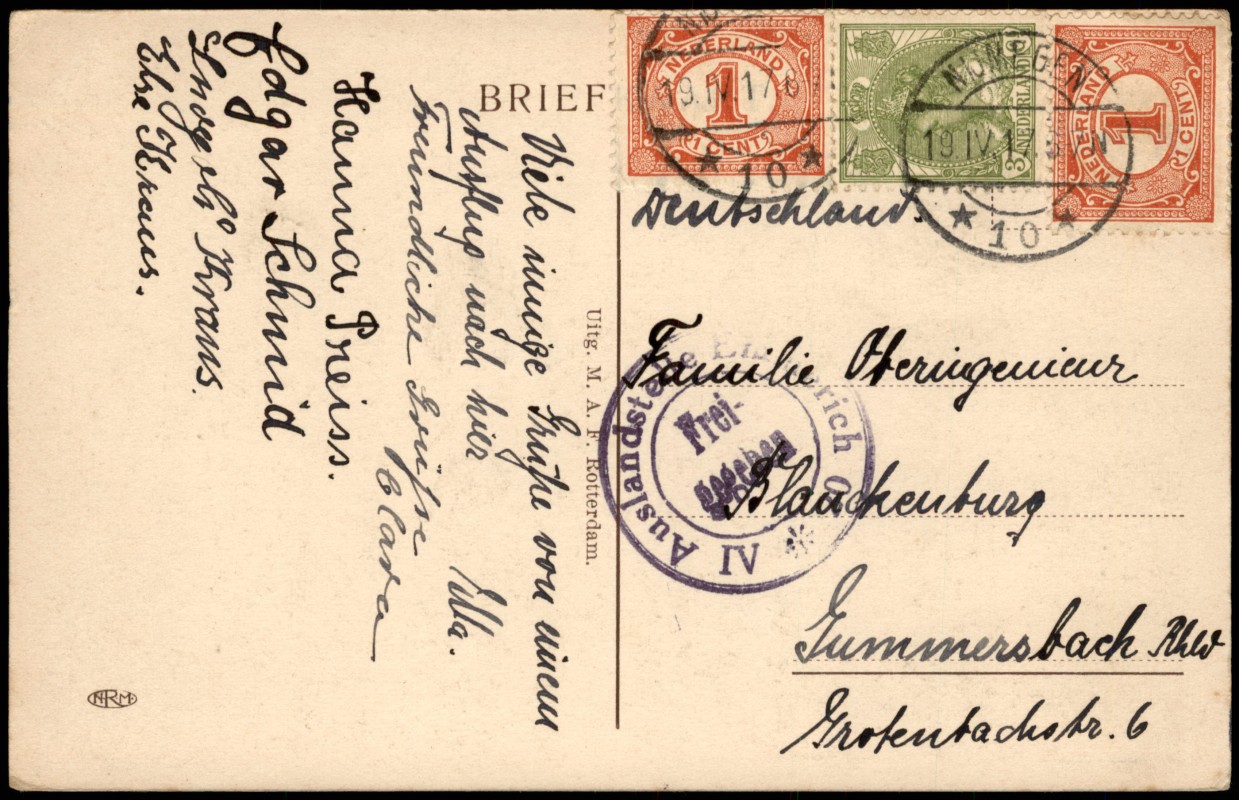 BRIEF
Viele innige Grüße von einem
Ausflug nach hier
Ella.
Freundliche Grüsse
Clara
Hanna Preiss.
Edgar Schmid
Kraus.
Kraus.
Uitg. M. A. F. Rotterdam.
NRM
NEDERLAND
1
1 CENT
19.IV.17
10
NEDERLAND
3
NIJMEGEN
19.IV.1
N
10
NEDERLAND
1
1 CENT
Deutschland.
Familie Oberingenieur
Blanckenburg
Gummersbach Rhld
Grotenbachstr. 6
IV Auslandstelle Emmerich
Frei-
gegeben